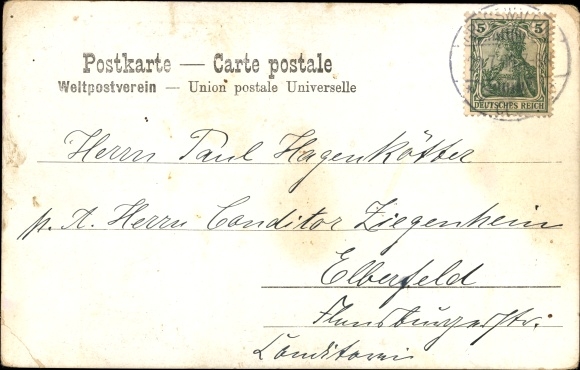 Postkarte — Carte postale
Weltpostverein — Union postale Universelle
5 5
DEUTSCHES REICH
Herrn Paul Hagenkötter
p. A. Herrn Conditor Ziegenhein
Elberfeld
Flensburgerstr.
Conditorei